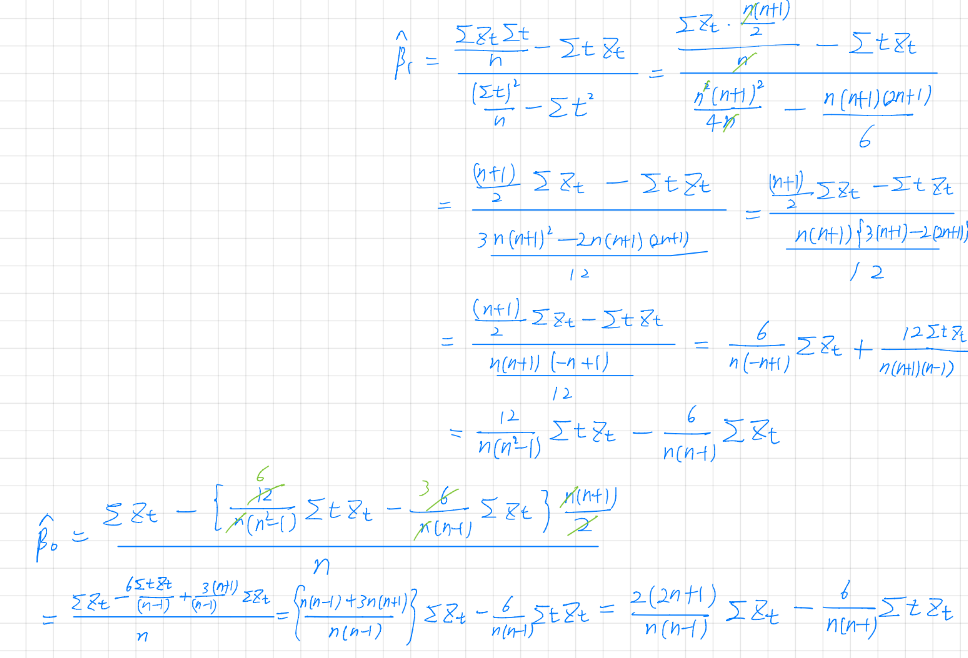 \hat{\beta}_1 = \frac{\frac{\Sigma Z_t \Sigma t}{n} - \Sigma t Z_t}{\frac{(\Sigma t)^2}{n} - \Sigma t^2} = \frac{\frac{\Sigma Z_t \cdot \frac{n(n+1)}{2}}{n} - \Sigma t Z_t}{\frac{n^2(n+1)^2}{4n} - \frac{n(n+1)(2n+1)}{6}}
= \frac{\frac{(n+1)}{2} \Sigma Z_t - \Sigma t Z_t}{\frac{3n(n+1)^2 - 2n(n+1)(2n+1)}{12}} = \frac{\frac{(n+1)}{2} \Sigma Z_t - \Sigma t Z_t}{\frac{n(n+1)\{3(n+1) - 2(2n+1)\}}{12}}
= \frac{\frac{(n+1)}{2} \Sigma Z_t - \Sigma t Z_t}{\frac{n(n+1)(-n+1)}{12}} = \frac{6}{n(-n+1)} \Sigma Z_t + \frac{12 \Sigma t Z_t}{n(n+1)(n-1)}
= \frac{12}{n(n^2-1)} \Sigma t Z_t - \frac{6}{n(n-1)} \Sigma Z_t
\hat{\beta}_0 = \frac{\Sigma Z_t - \{\frac{12}{n(n^2-1)} \Sigma t Z_t - \frac{6}{n(n-1)} \Sigma Z_t\} \frac{n(n+1)}{2}}{n}
= \frac{\Sigma Z_t - \frac{6 \Sigma t Z_t}{(n-1)} + \frac{3(n+1)}{(n-1)} \Sigma Z_t}{n} = \{\frac{n(n-1) + 3n(n+1)}{n(n-1)}\} \Sigma Z_t - \frac{6}{n(n-1)} \Sigma t Z_t = \frac{2(2n+1)}{n(n-1)} \Sigma Z_t - \frac{6}{n(n-1)} \Sigma t Z_t